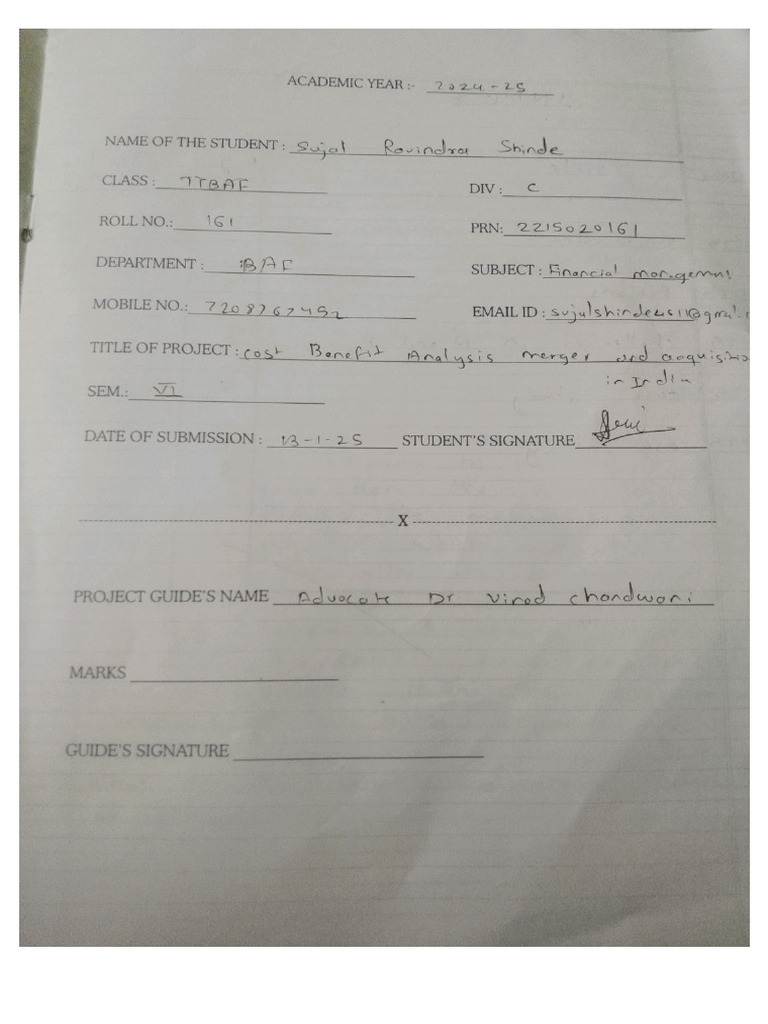 ACADEMIC YEAR :- 2024-25
NAME OF THE STUDENT : Sujal Ravindra Shinde
CLASS : TYBAF DIV : C
ROLL NO.: 161 PRN: 2215020161
DEPARTMENT : BAF SUBJECT : Financial management
MOBILE NO.: 7208767452 EMAIL ID :
TITLE OF PROJECT : cost Benefit Analysis merger and acquisition
in India
SEM.: VI
DATE OF SUBMISSION : 13-1-25 STUDENT'S SIGNATURE
X
PROJECT GUIDE'S NAME Advocate Dr Vinod Chandwani
MARKS
GUIDE'S SIGNATURE